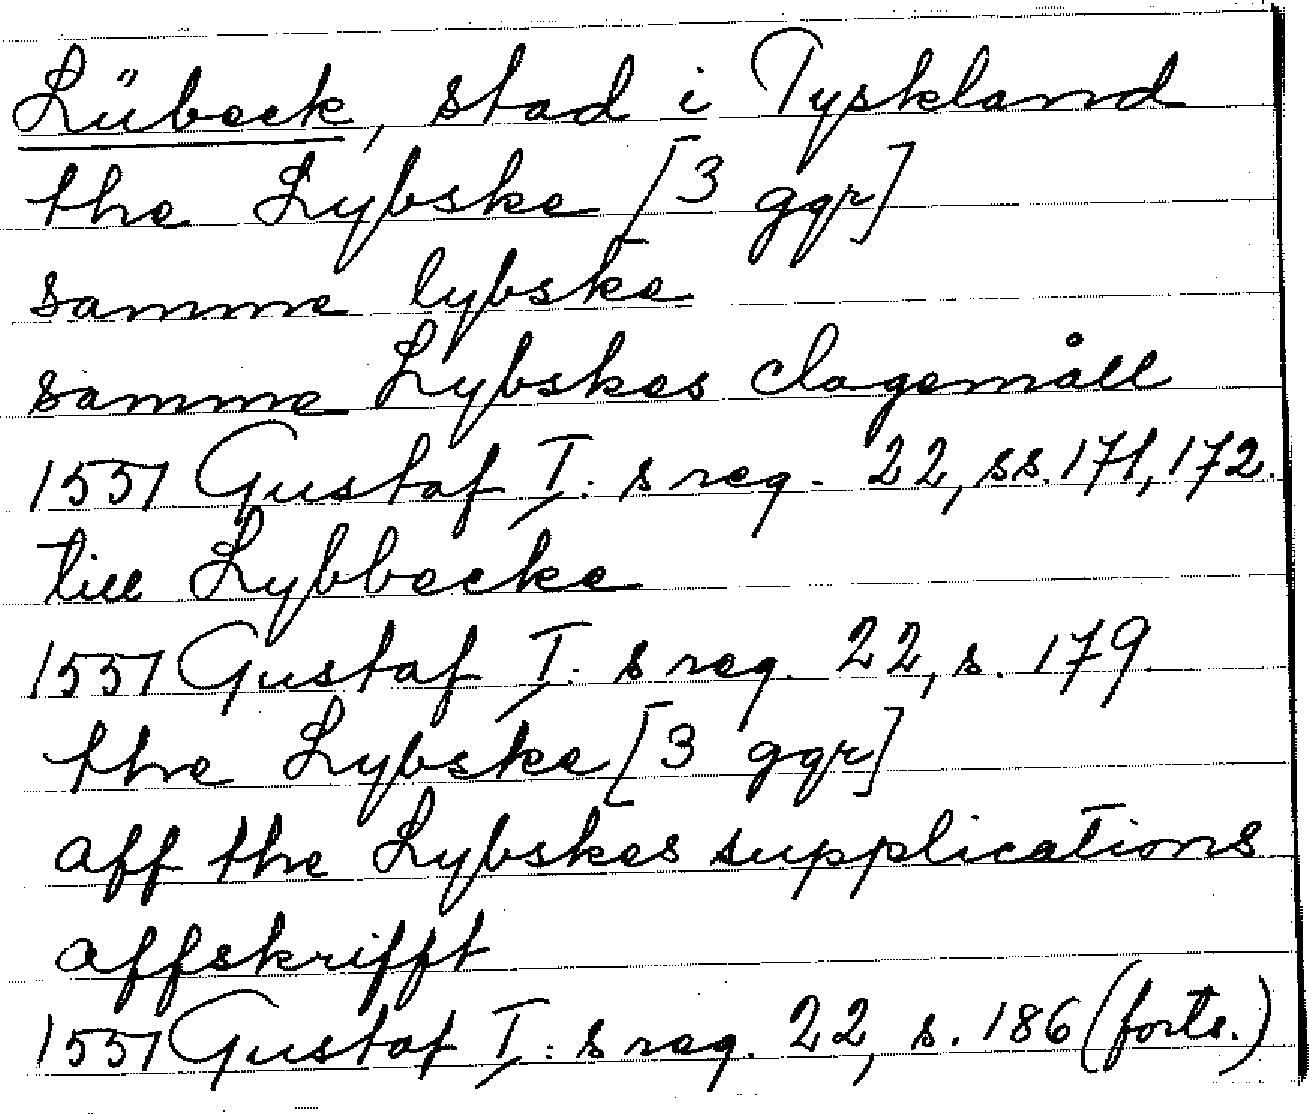 Lübeck, stad i Tyskland
the Lybske [3 ggr]
samme lybske
samme Lybskes clagemåll
1551 Gustaf I: s reg. 22, ss. 171, 172.
till Lybbecke
1551 Gustaf I: s reg. 22, s. 179
the Lybske [3 ggr]
aff the Lybskes supplications
affskrifft
1551 Gustaf I: s reg. 22, s. 186 (forts.)